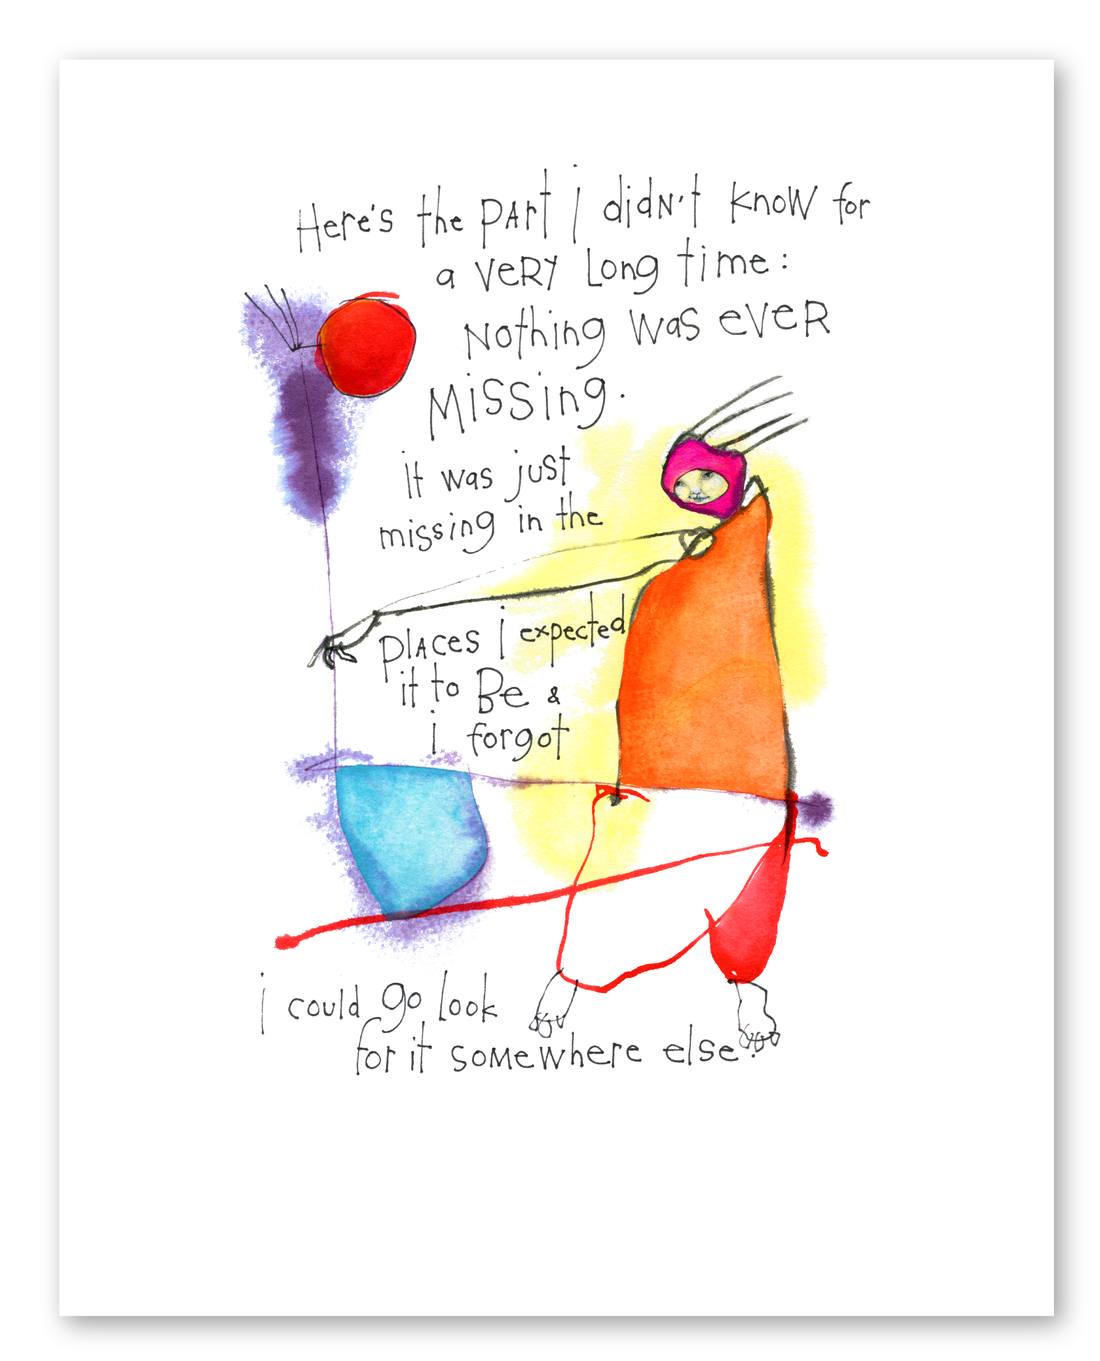 Here's the part i didn't know for
a very long time:
Nothing was ever
missing.
it was just
missing in the
places i expected
it to Be &
i forgot
i could go look
for it somewhere else.